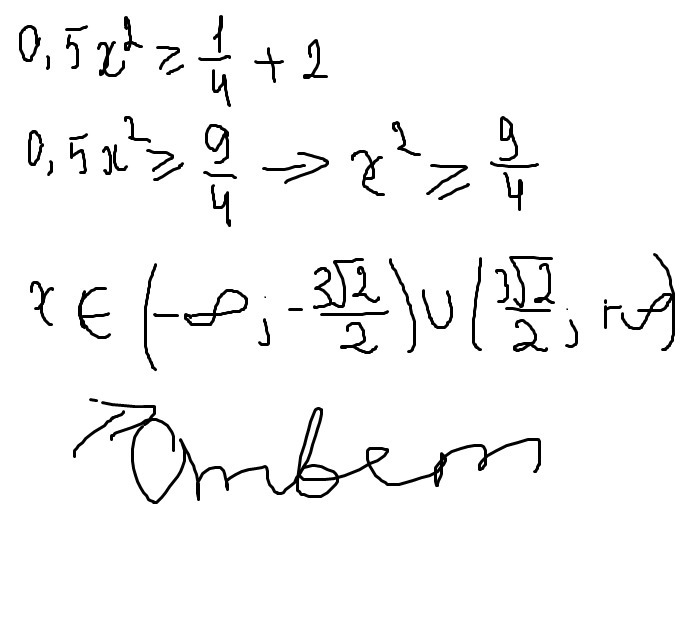 0,5x² ≥ 1/4 + 2
0,5x² ≥ 9/4 → x² ≥ 9/4
x ∈ (-∞; -3√2/2) ∪ (3√2/2; +∞)
⇒ Ответ